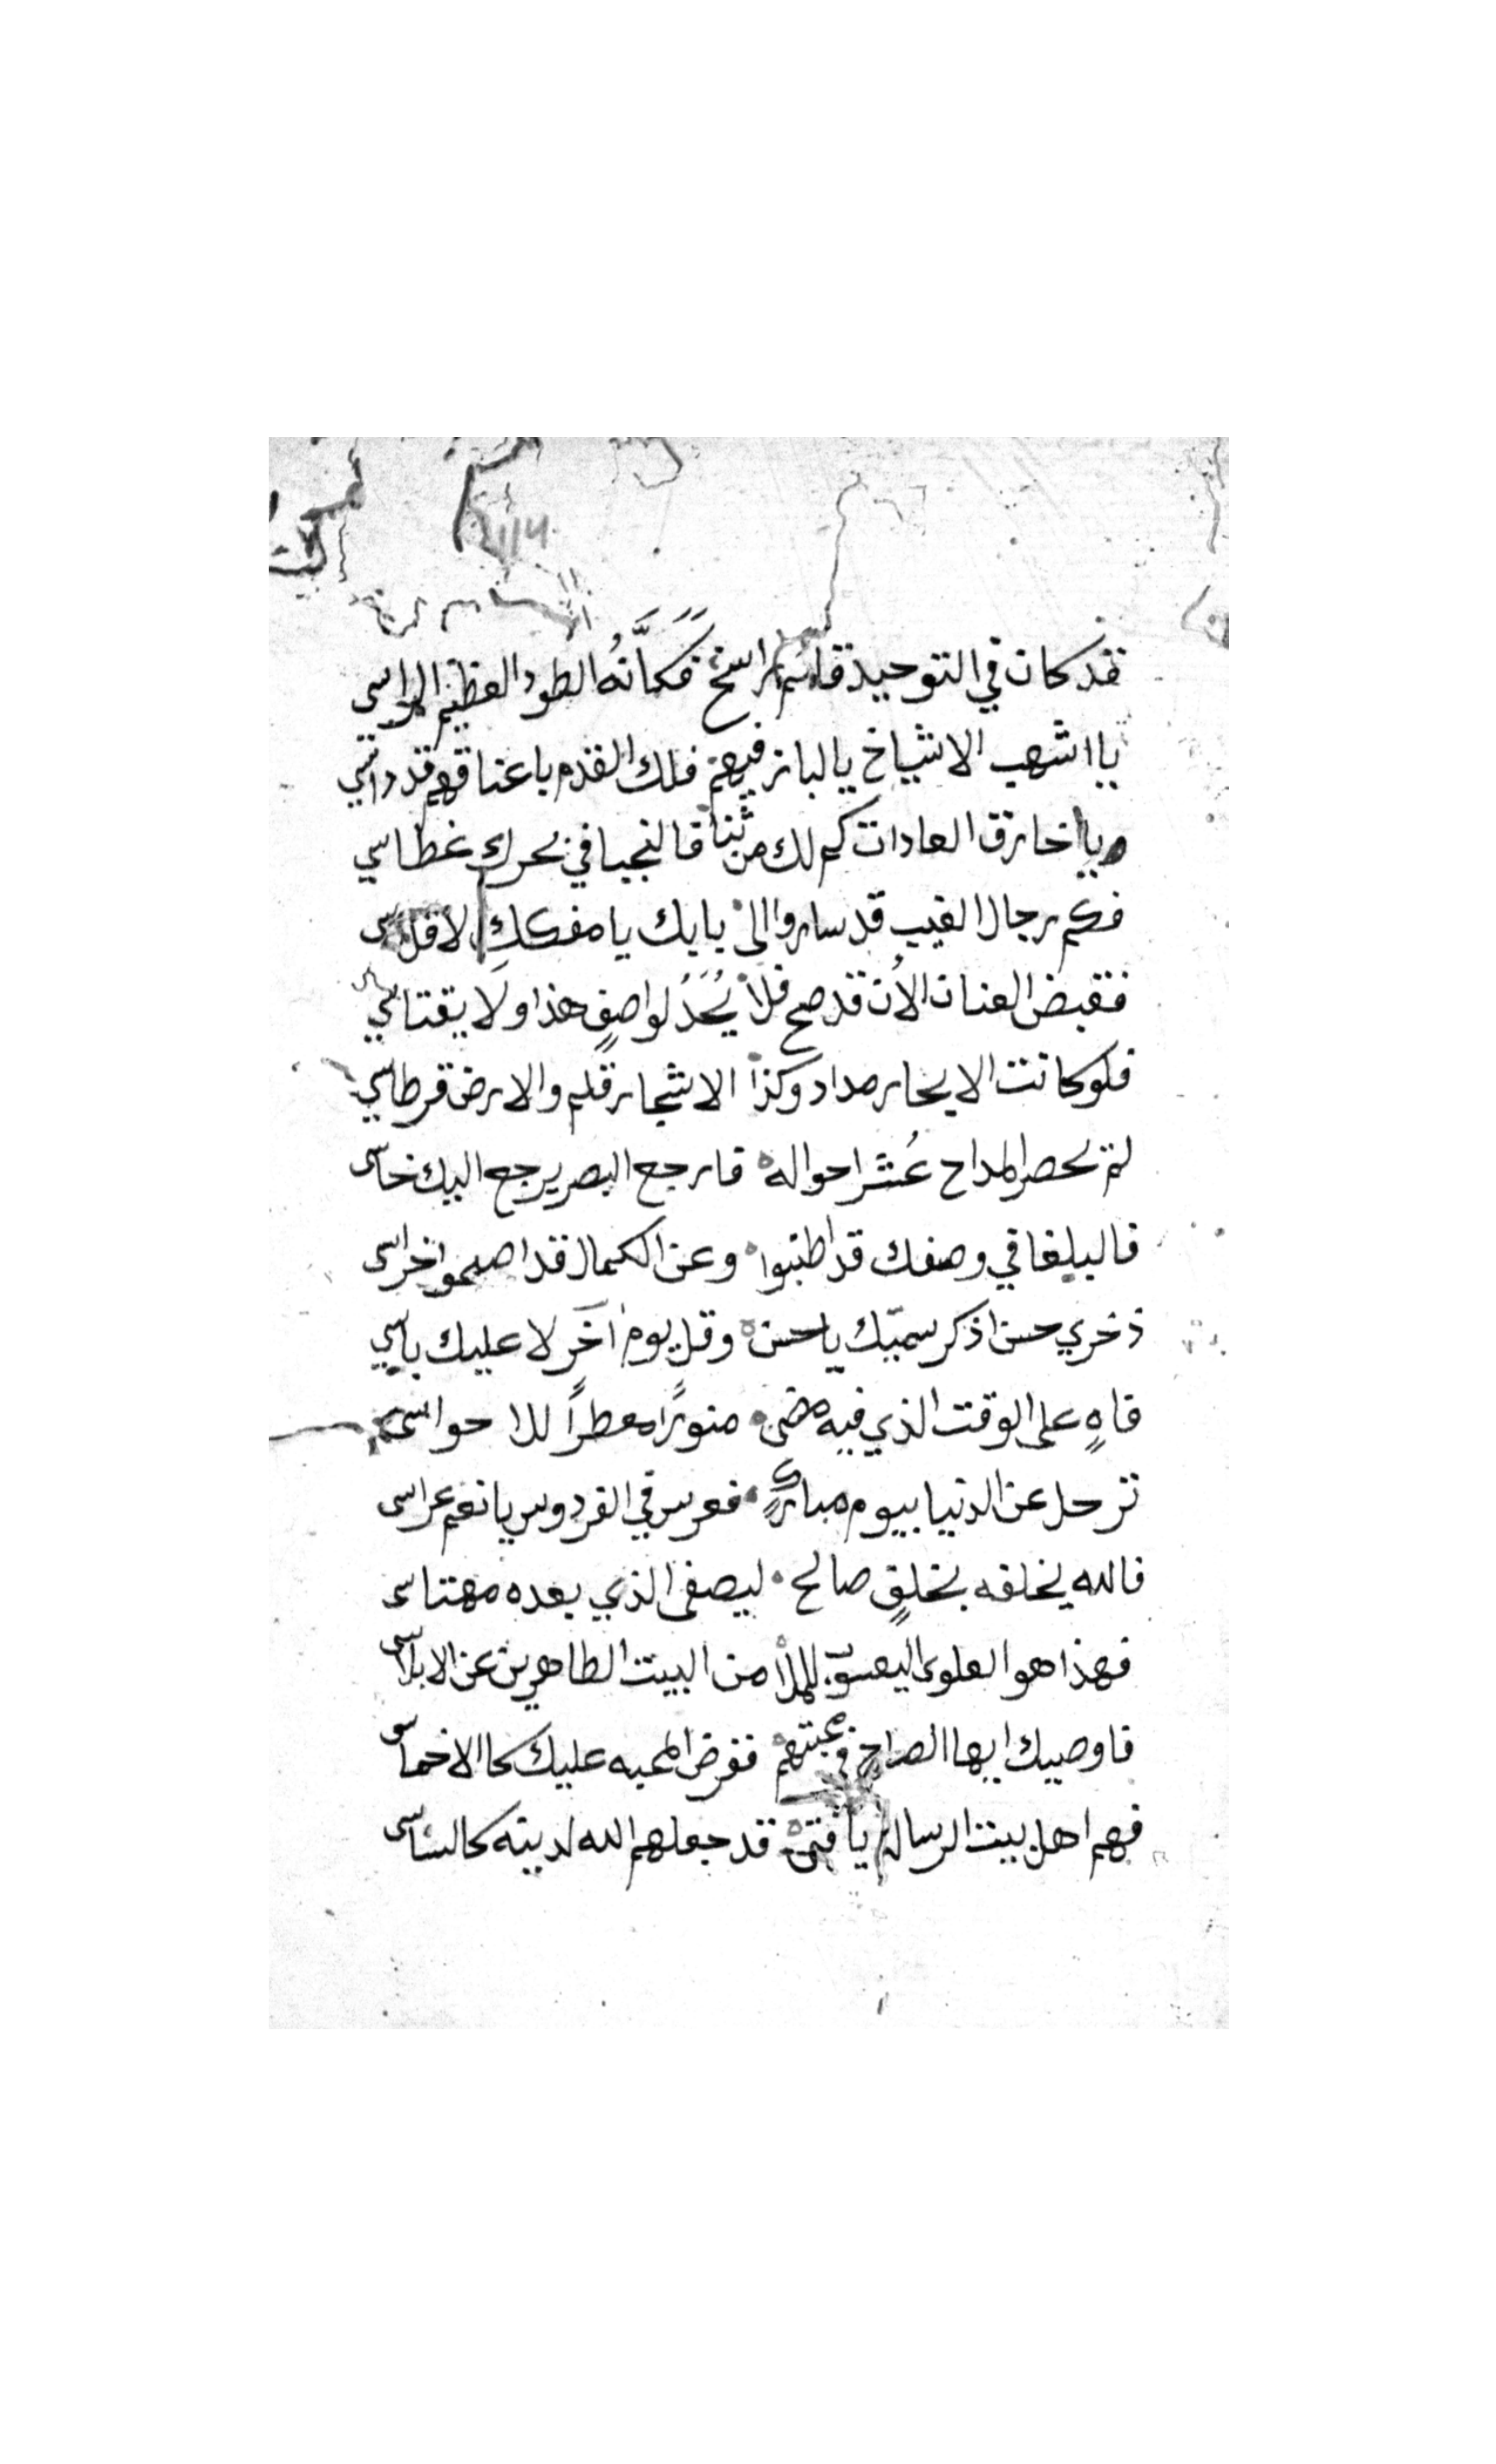 فقد كان في التوحيد قاسم راسخ فكأنه الطود العظيم الراسي
يا اشهب الاشياخ يا لباز فيهم فلك القدم باعناقهم قد داسي
ويا خارق العادات كم لك من ثنا فالنجبا في بحرك غطاسي
فكم رجال الغيب قد ساروا الى بابك يا مفكك الاقلاسى
فقبض العنان الأن قد صح فلا يُحَدُ لواصفٍ هذا ولا يقتاسي
فلو كانت الابحار مداد وكذا الاشجار قلم والارض قرطاسي
لم يحصر المداح عُشر احواله فارجع البصر يرجع اليك خاسى
فالبلغا في وصفك قد اطنبوا وعن الكمال قد اصبحو اخراسى
ذخري حسن اذكر سميّك يا حسن وقل يوم آخرٍ لا عليك باسي
فاهٍ على الوقت الذي فيه مضى منورًا معطرًا للا حواسى
ترحل عن الدنيا بيوم مباركٍ فعرس في الفردوس يا نعم عراسى
فالله يخلفه بخلفٍ صالح ليصفى الذي بعده مهتاسى
فهذا هو العلوى اليعسوب للملا من البيت الطاهرين عن الابلاسى
فاوصيك ايها الصاح في محبتهم ففرض المحبه عليك كا الاخماسى
فهم اهل بيت الرساله يا فتى قد جعلهم الله لدينه كالساسى